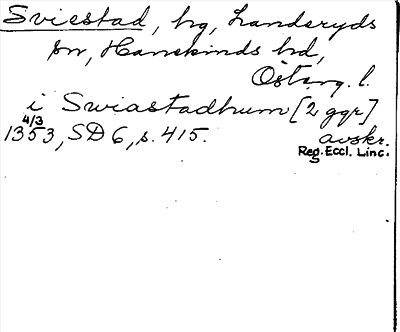 Sviestad, hg, Landeryds
sn, Hanekinds hd,
Österg. l.
i Swiastadhum [2 ggr]
4/3
1353, SD 6, s. 415. avskr.
Reg. Eccl. Linc.